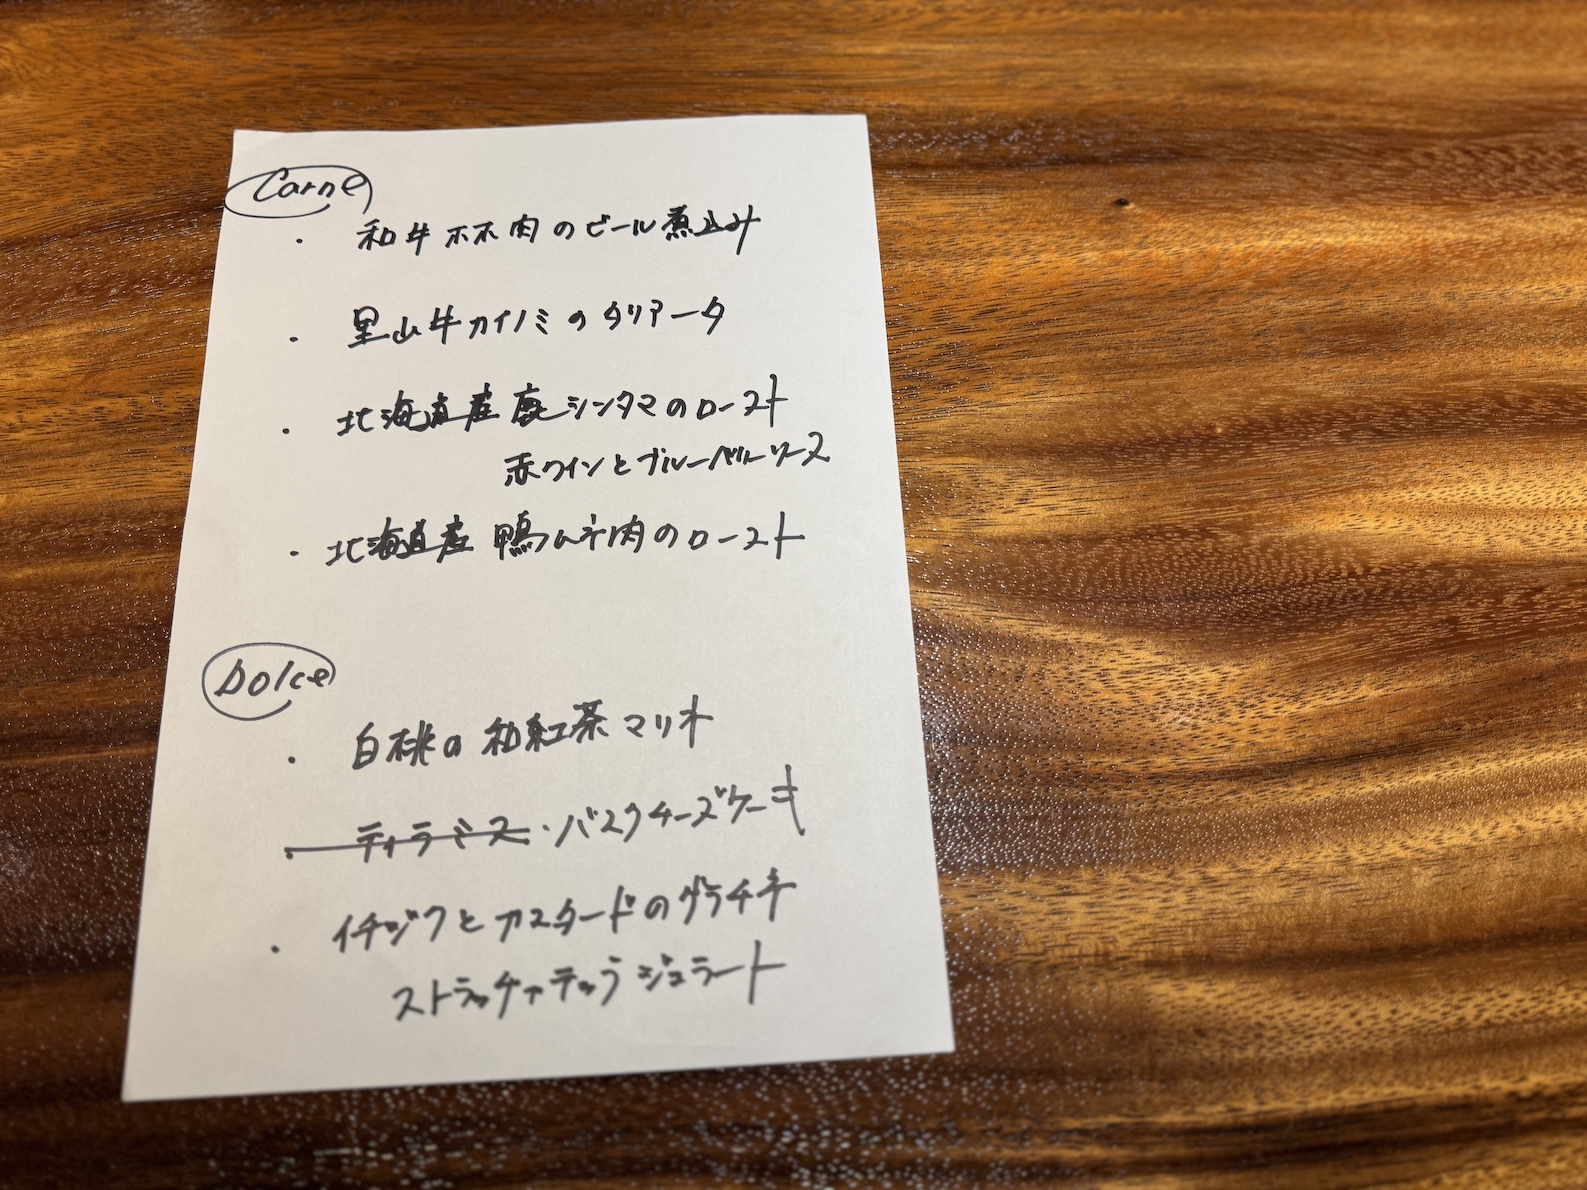 Carne
・ 和牛ホホ肉のビール煮込み
・ 里山牛カイノミのタリアータ
・ 北海道産鹿シンタマのロースト
赤ワインとブルーベリーソース
・ 北海道産 鴨ムネ肉のロースト
Dolce
・ 白桃の和紅茶マリネ
・ ティラミス ・バスクチーズケーキ
・ イチジクとカスタードのグラチネ
ストラッチャテッラジェラート